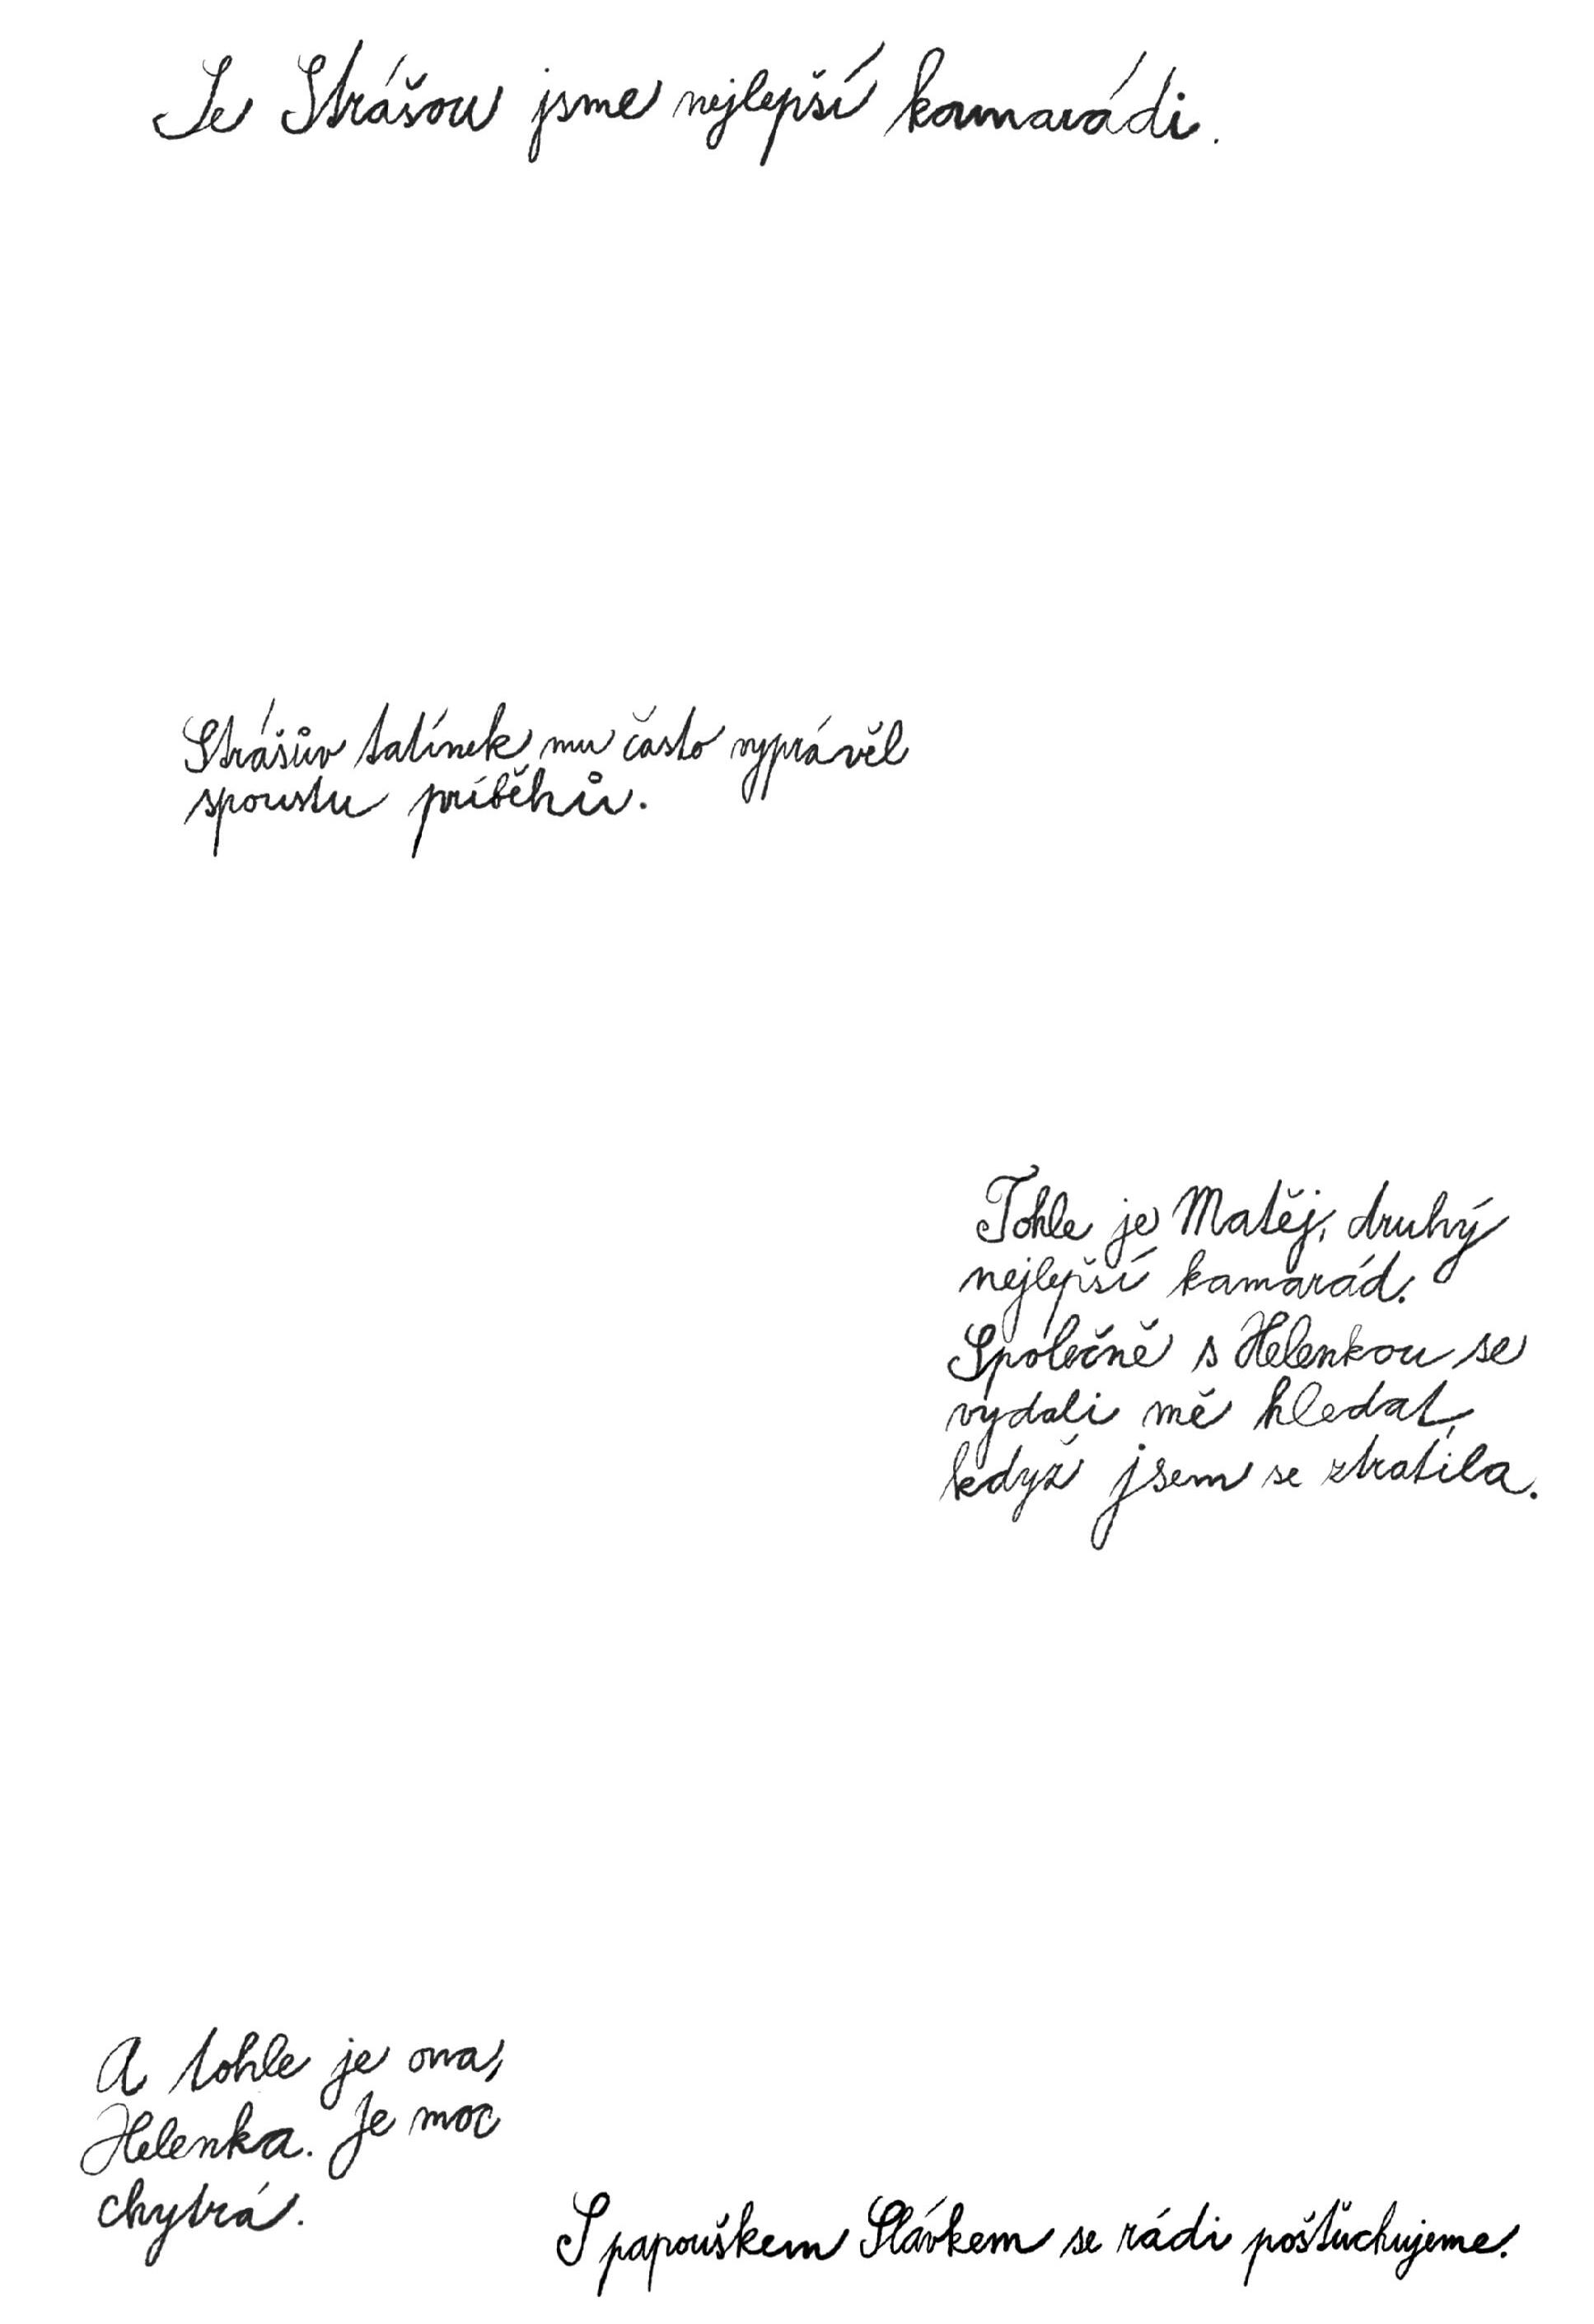 Se Strášou jsme nejlepší kamarádi.
Strášův tatínek mu často vyprávěl
spoustu príběhů.
Tohle je Matěj, druhý
nejlepší kamarád.
Společně s Helenkou se
vydali mě hledat,
když jsem se ztratila.
A tohle je ona,
Helenka. Je moc
chytrá.
S papouškem Slávkem se rádi pošťuchujeme.